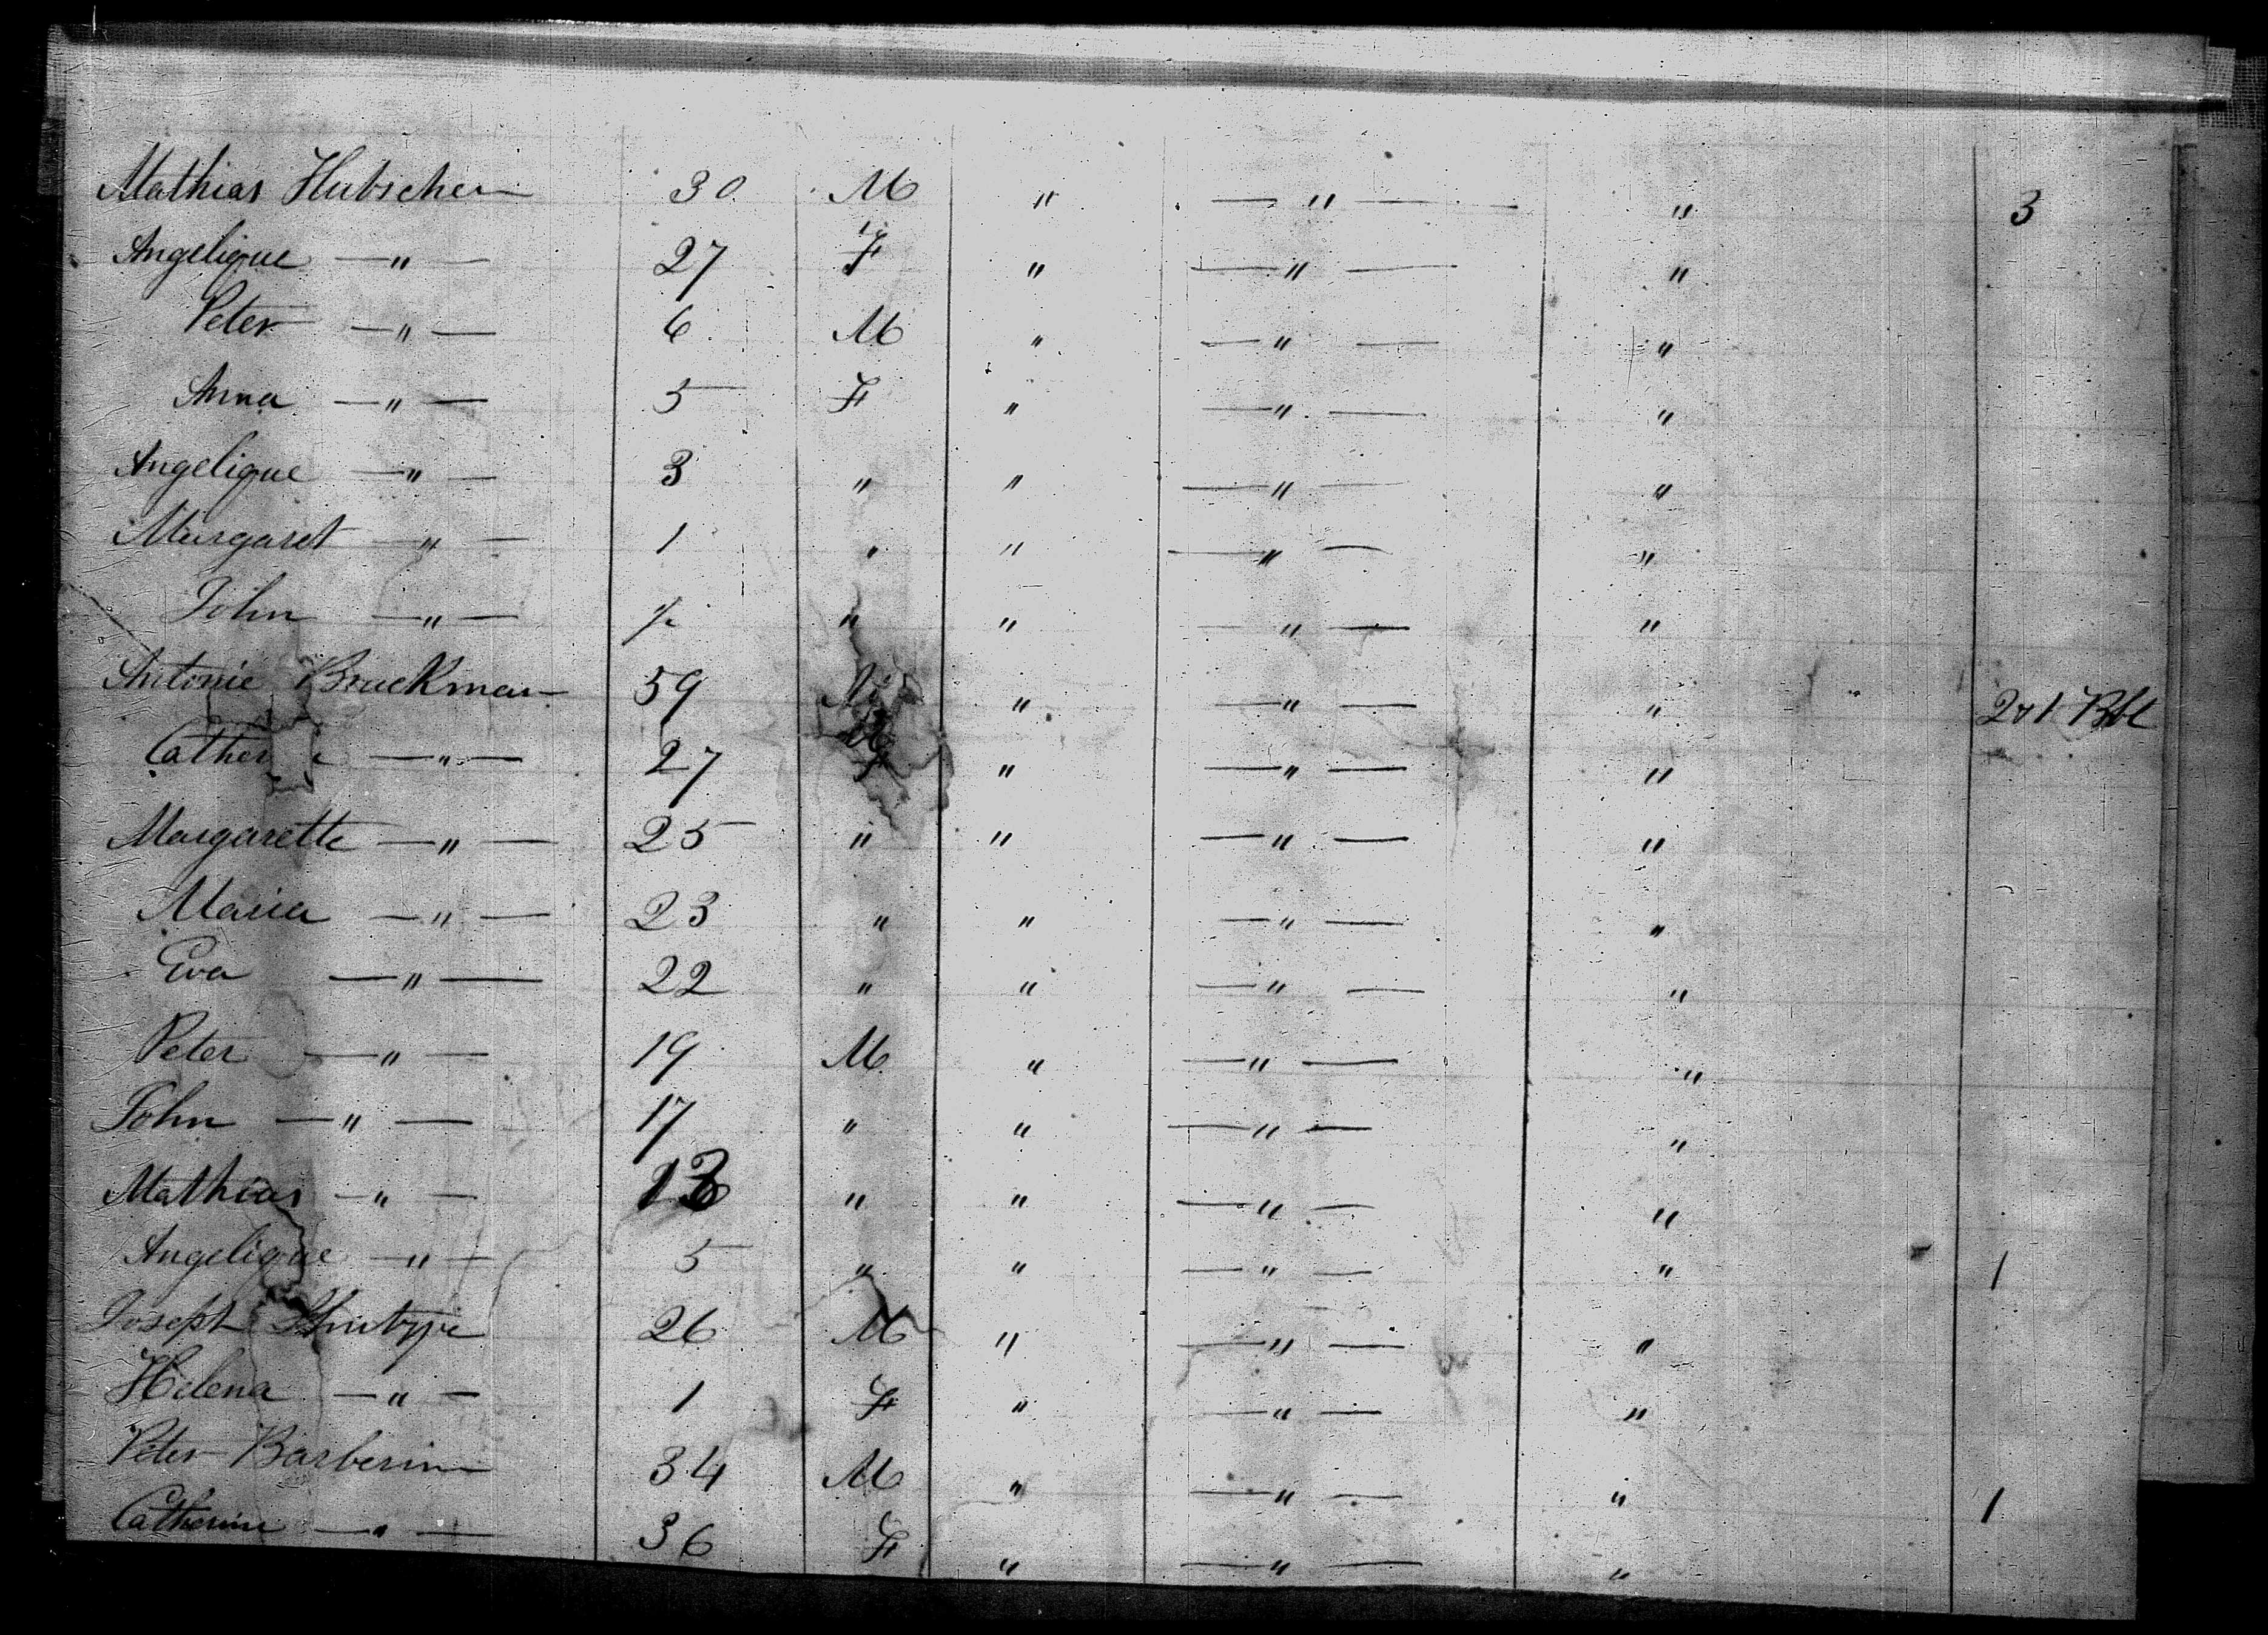 Mathias Hubscher 30 M " — " — " 3
Angelique — " — 27 F " — " — "
Peter — " — 6 M " — " — "
Anna — " — 5 F " — " — "
Angelique — " — 3 " " — " — "
Margaret — " — 1 " " — " — "
John — " — " " — " — "
Antonie Bruckman 59 M " — " — " 2 & 1 Bbl
— " — 27 " — " — "
Margarette — " — 25 " " — " — "
Maria — " — 23 " " — " — "
Eva — " — 22 " " — " — "
Peter — " — 19 M " — " — "
John — " — 17 " " — " — "
Mathias — " — 13 " " — " — "
Angelique — " — 5 " " — " — " 1
Joseph 26 M " — " — "
Helena — " — 1 F " — " — "
Peter Barberin 34 M " — " — " 1
Catherine — " — 36 F " — " — "